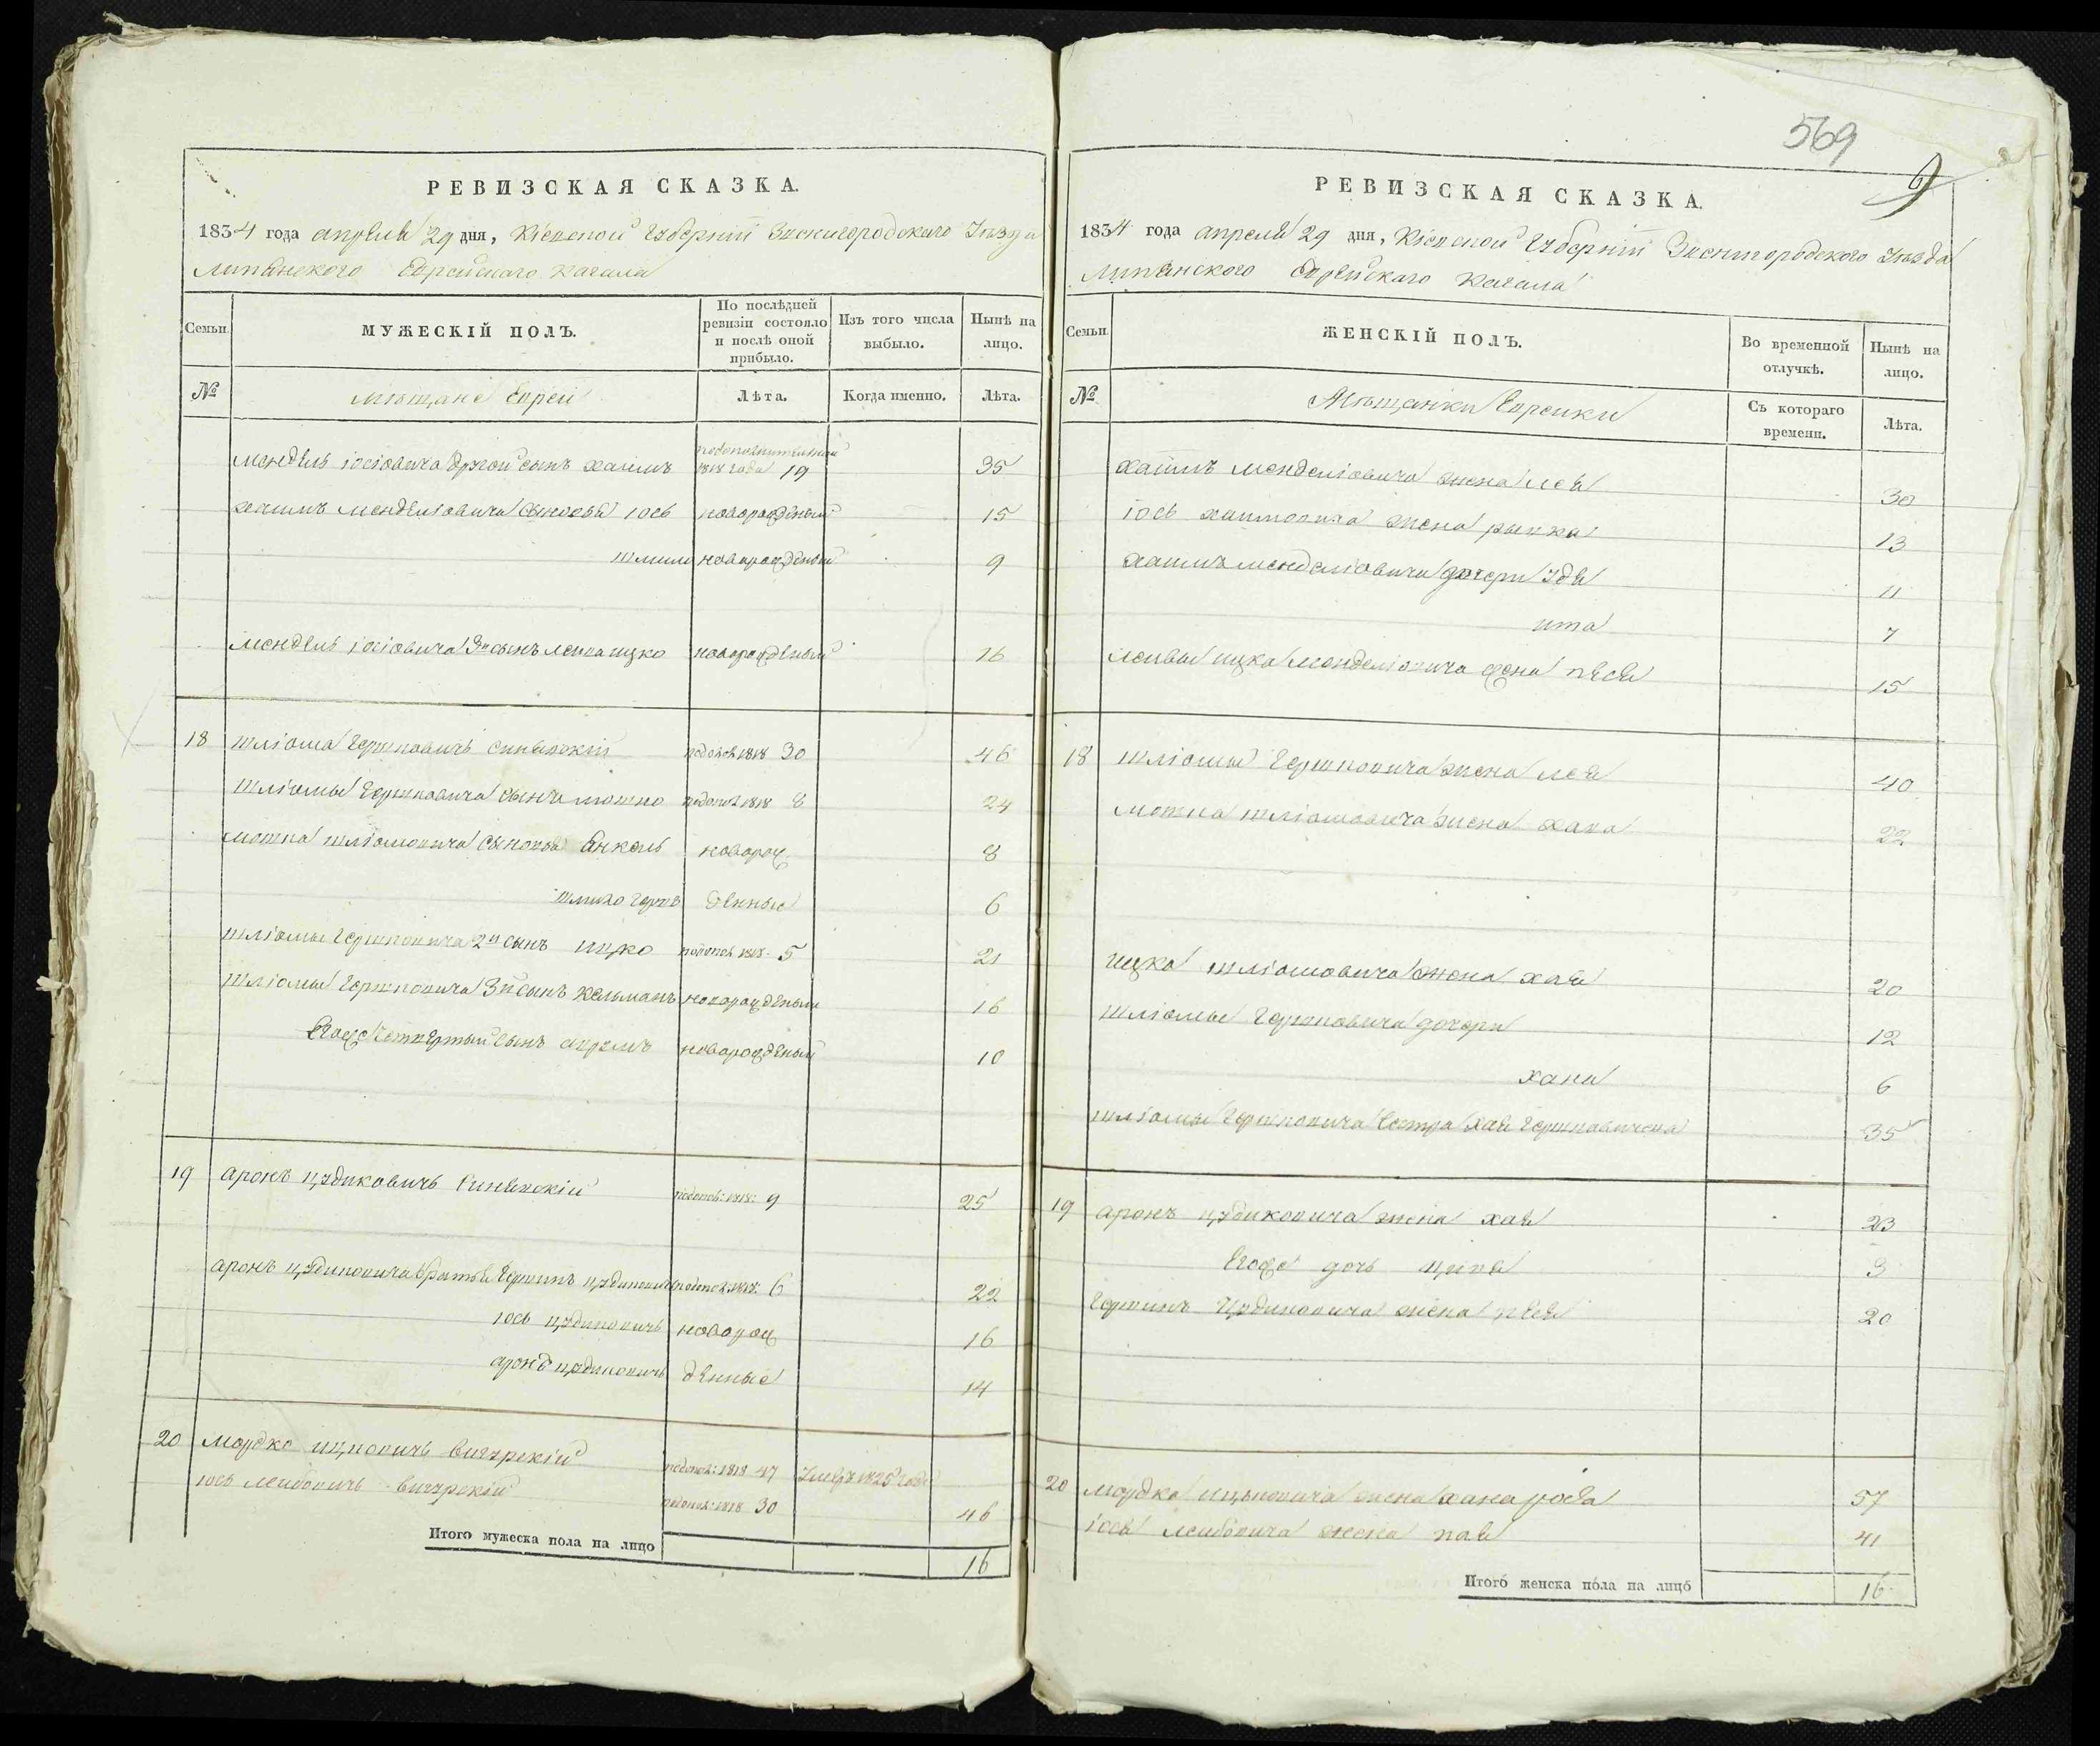 569
РЕВИЗСКАЯ СКАЗКА.
1834 года апреля 29 дня, Кіевской Губерніи Звенигородского Уезда
Лисянского Еврейскаго Кагала
Семьи. МУЖЕСКІЙ ПОЛЪ. По послѣдней ревизіи состояло и послѣ оной прибыло. Изъ того числа выбыло. Нынѣ на лицо.
№ Мѣщане Евреи Лѣта. Когда именно. Лѣта.
Мендель Іосіовича другой сынъ Хаимъ 1818 года 19 35
Хаимъ Менделіовича сыновья Іось новорожденый 15
Шлиома новорожденый 9
Мендель Іосіовича 3й сынъ Лейба Ицко новорожденый 16
18 Шліома Гершковичъ 1818 30 46
Шліомы Гершковича сынъ Мошко 1818 8 24
Мошка Шліомовича сыновья Янкель новорож 8
Герш денные 6
Шліомы Гершковича 2й сынъ Ицко 1818 5 21
Шліомы Гершковича 3й сынъ Кельманъ новорожденый 16
Егожъ четвертый сынъ Аврумъ новорожденый 10
19 Аронъ Цудиковичъ Синявскій 1818: 9 25
Аронъ Цудиковича братья Гершинъ Цудиковичъ 1818: 6 22
Іось Цудиковичъ новорож 16
Аронъ Цудиковичъ денные 14
20 Мордко Ицковичъ 1818 47 Умеръ 1825 года
Іось Лейбовичъ 1818 30 46
Итого мужеска пола на лицо 16
РЕВИЗСКАЯ СКАЗКА.
1834 года апреля 29 дня, Кіевской Губерніи Звенигородского Уезда
Лисянского Еврейскаго Кагала
Семьи. ЖЕНСКІЙ ПОЛЪ. Во временной отлучкѣ. Нынѣ на лицо.
№ Мѣщанки Еврейки Съ котораго времени. Лѣта.
Хаимъ Менделіовича жена Лея 30
Іось Хаимовича жена Рывка 13
Хаимъ Менделіовича дочери Удя 11
Ита 7
Лейбы Ицка Менделіовича жена Песя 15
18 Шліомы Гершковича жена Лея 40
Мошка Шліомовича жена Хана 22
Ицка Шліомовича жена Хая 20
Шліомы Гершковича дочери 12
Хана 6
Шліомы Гершковича сестра Хая Гершковичева 35
19 Аронъ Цудиковича жена Хая 23
Егожъ дочь 3
Гершинъ Цудиковича жена Песя 20
20 Мордка Ицьковича жена Хана 57
Іося Лейбовича жена 41
Итого женска пола на лицо 16